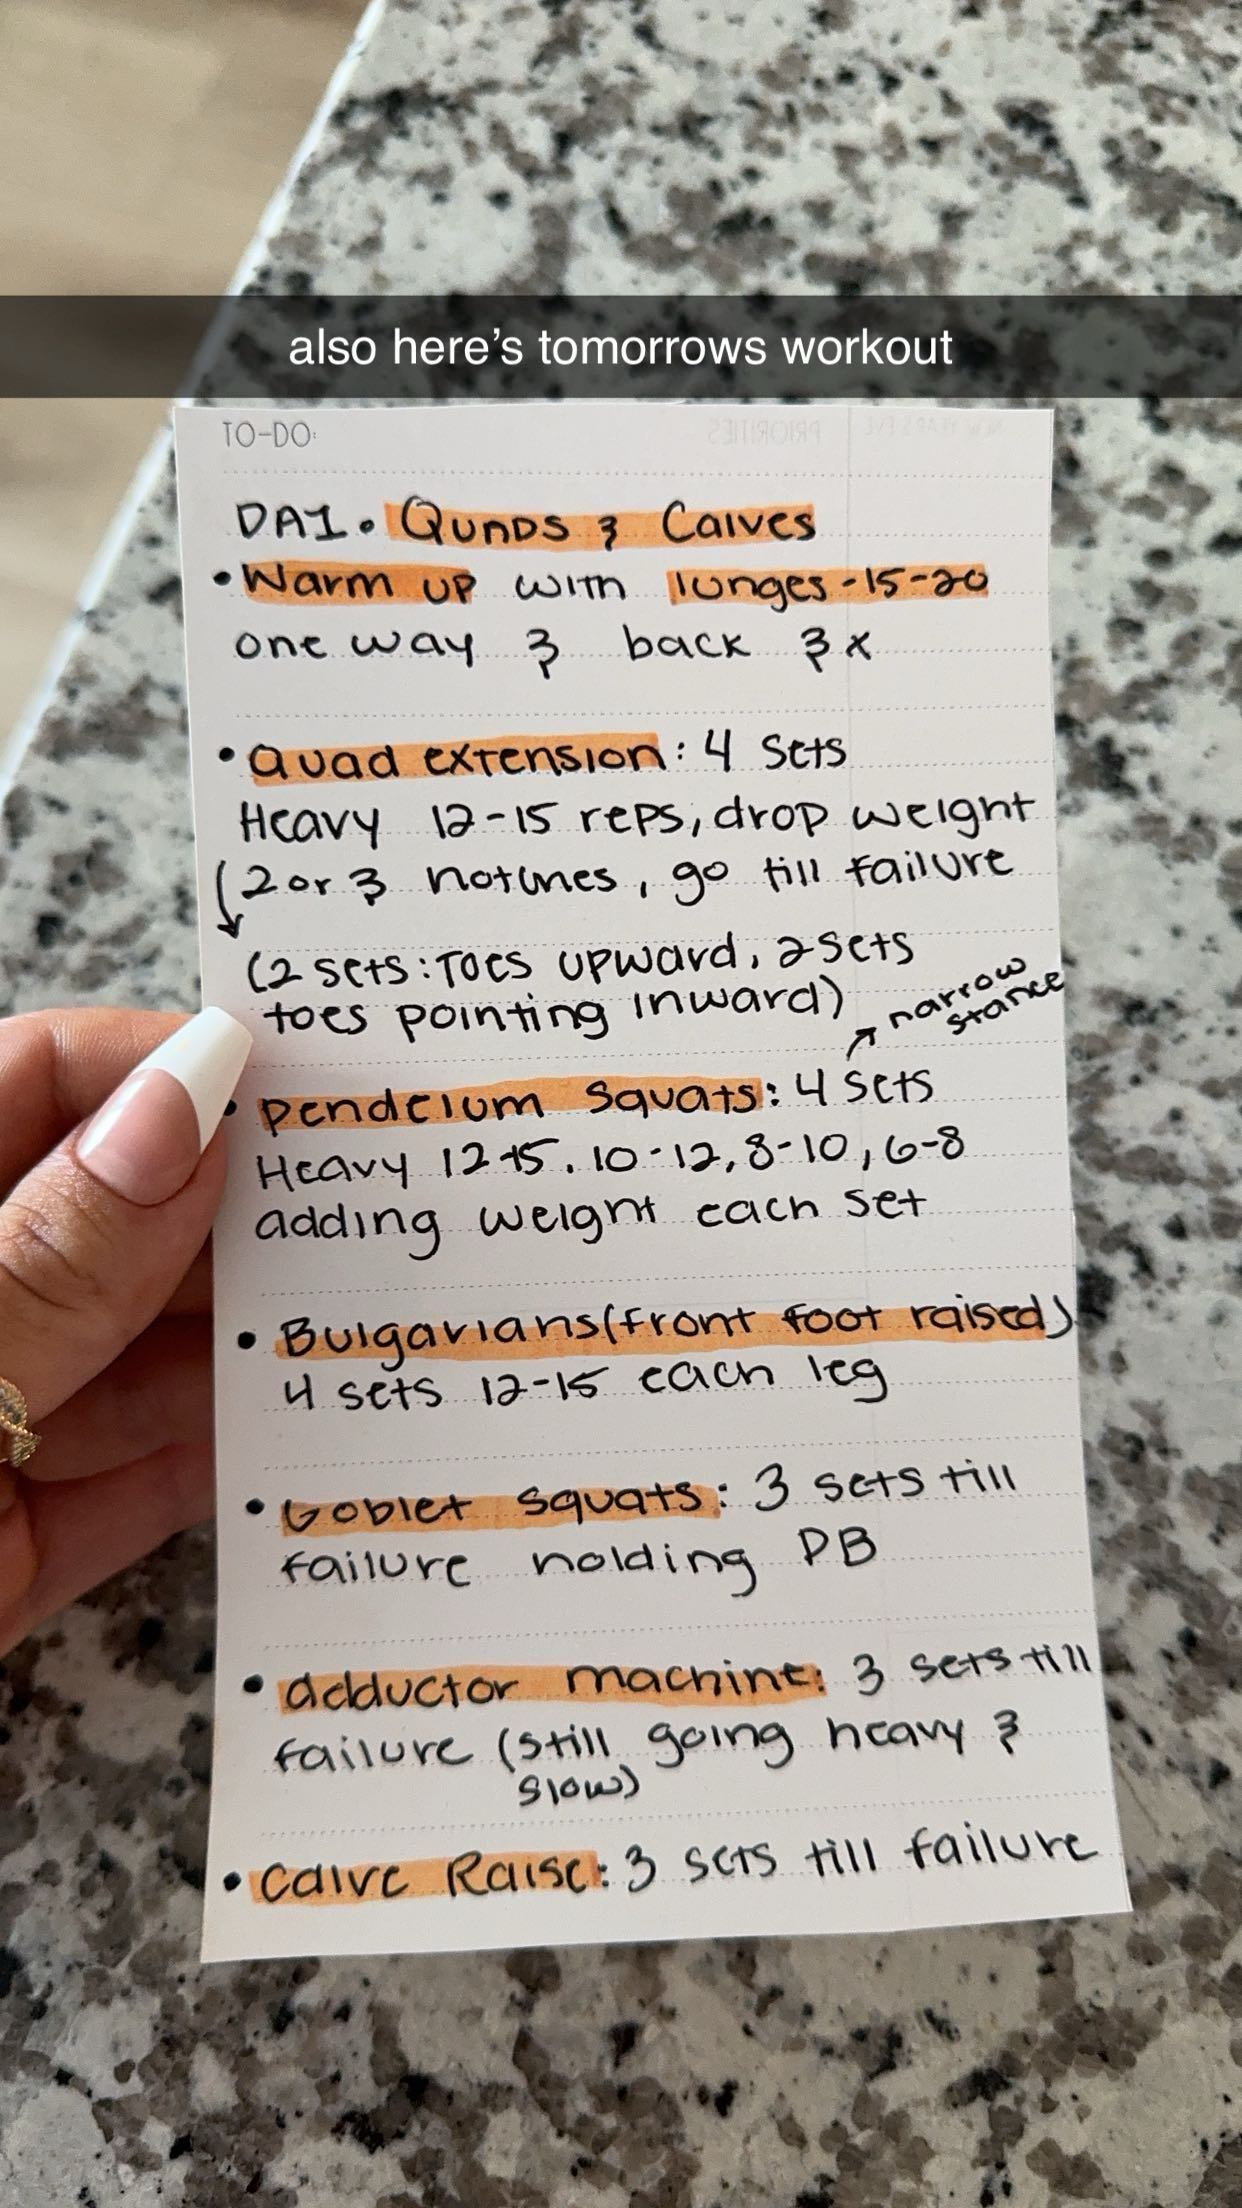 also here's tomorrows workout
TO-DO:
PRIORITIES
DAY. QUADS & Calves
• Warm up with lunges - 15-20
one way & back 3x
• Quad extension: 4 sets
Heavy 12-15 reps, drop weight
2 or 3 notches, go till failure
(2 sets: Toes upward, 2 sets
toes pointing inward)
narrow
stance
• pendelum squats: 4 sets
Heavy 12-15, 10-12, 8-10, 6-8
adding weight each set
• Bulgarians (front foot raised)
4 sets 12-15 each leg
• Goblet squats: 3 sets till
failure holding DB
• adductor machine: 3 sets till
failure (still going heavy &
slow)
• Calve Raise: 3 sets till failure